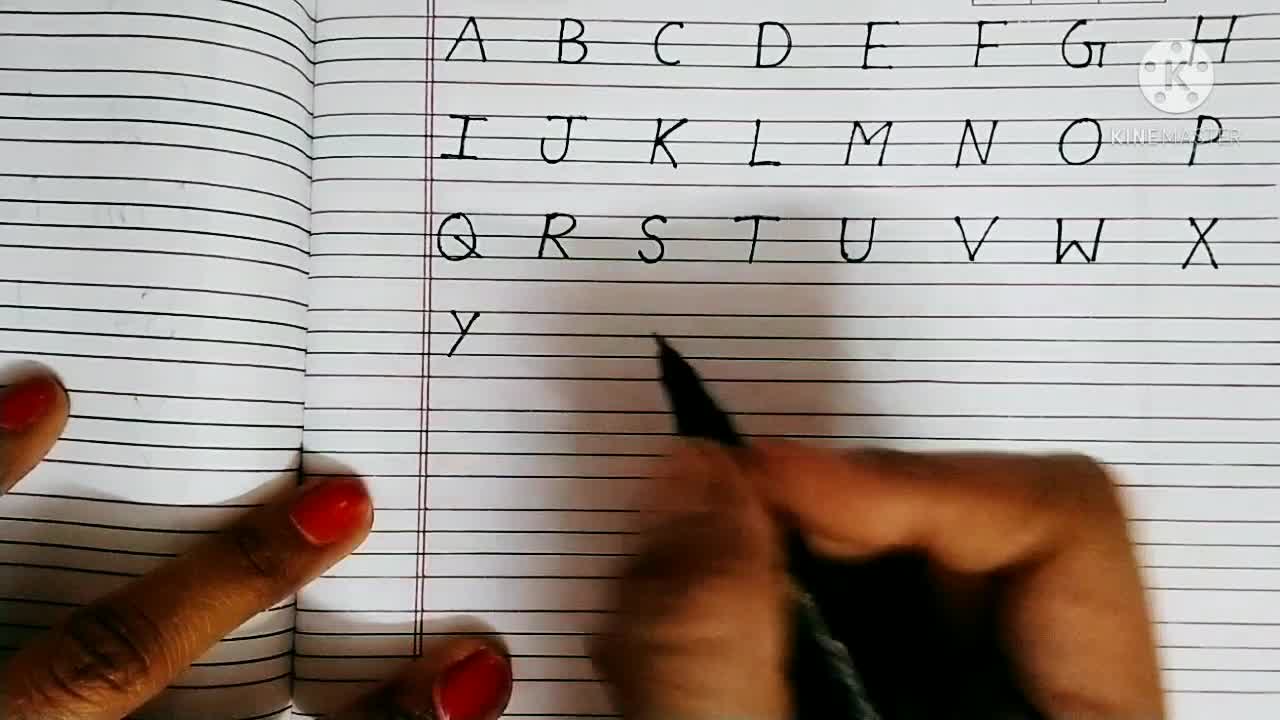 A B C D E F G H
I J K L M N O P
KINEMASTER
Q R S T U V W X
Y